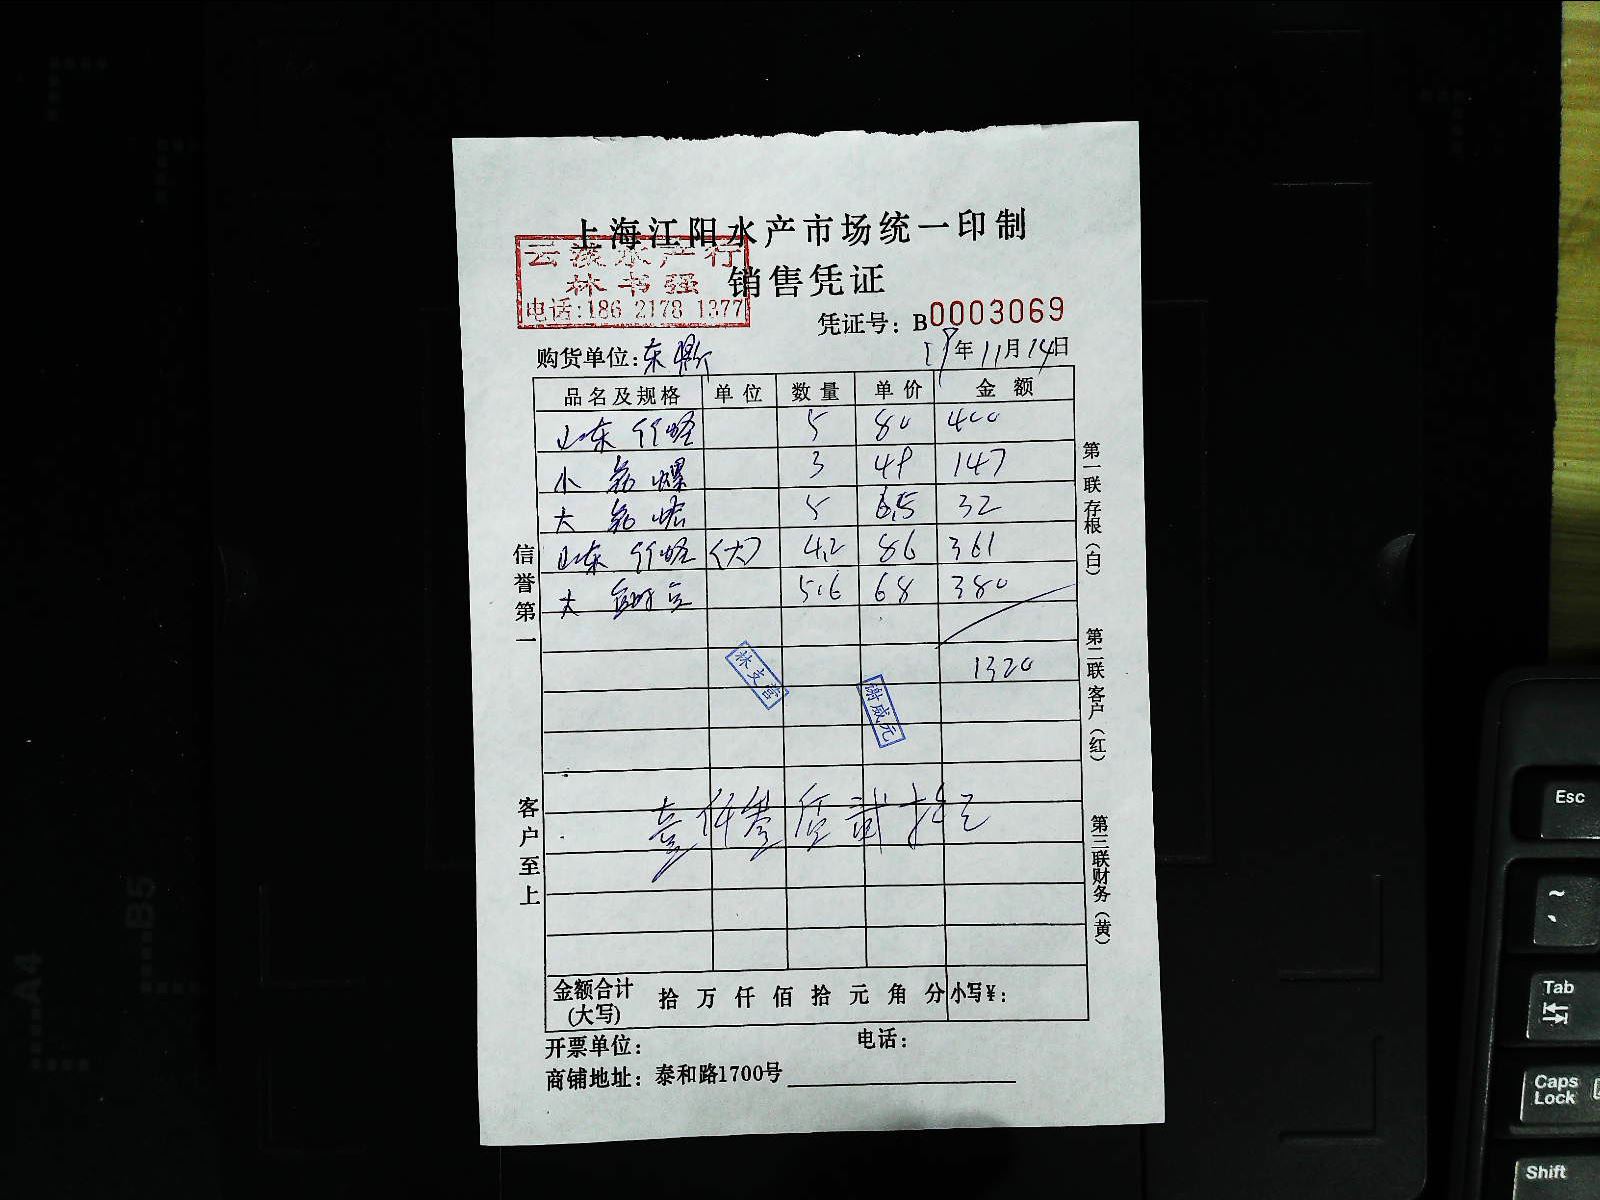 上海江阳水产市场统一印制
云 水产行
林书强
电话:186 2178 1377
销售凭证
凭证号: B0003069
购货单位: 东
19年11月14日
品名及规格 单位 数量 单价 金额
山东 5 80 400
小 螺 3 49 147
大 5 6.5 32
山东 (大) 4.2 86 361
大 5.6 68 380
1320
林支营
谢咸元
壹仟叁佰贰拾元
金额合计(大写) 拾 万 仟 佰 拾 元 角 分 小写¥:
开票单位: 电话:
商铺地址: 泰和路1700号
信誉第一
客户至上
第一联存根(白)
第二联客户(红)
第三联财务(黄)
A4
B5
Esc
~
Tab
Caps Lock
Shift